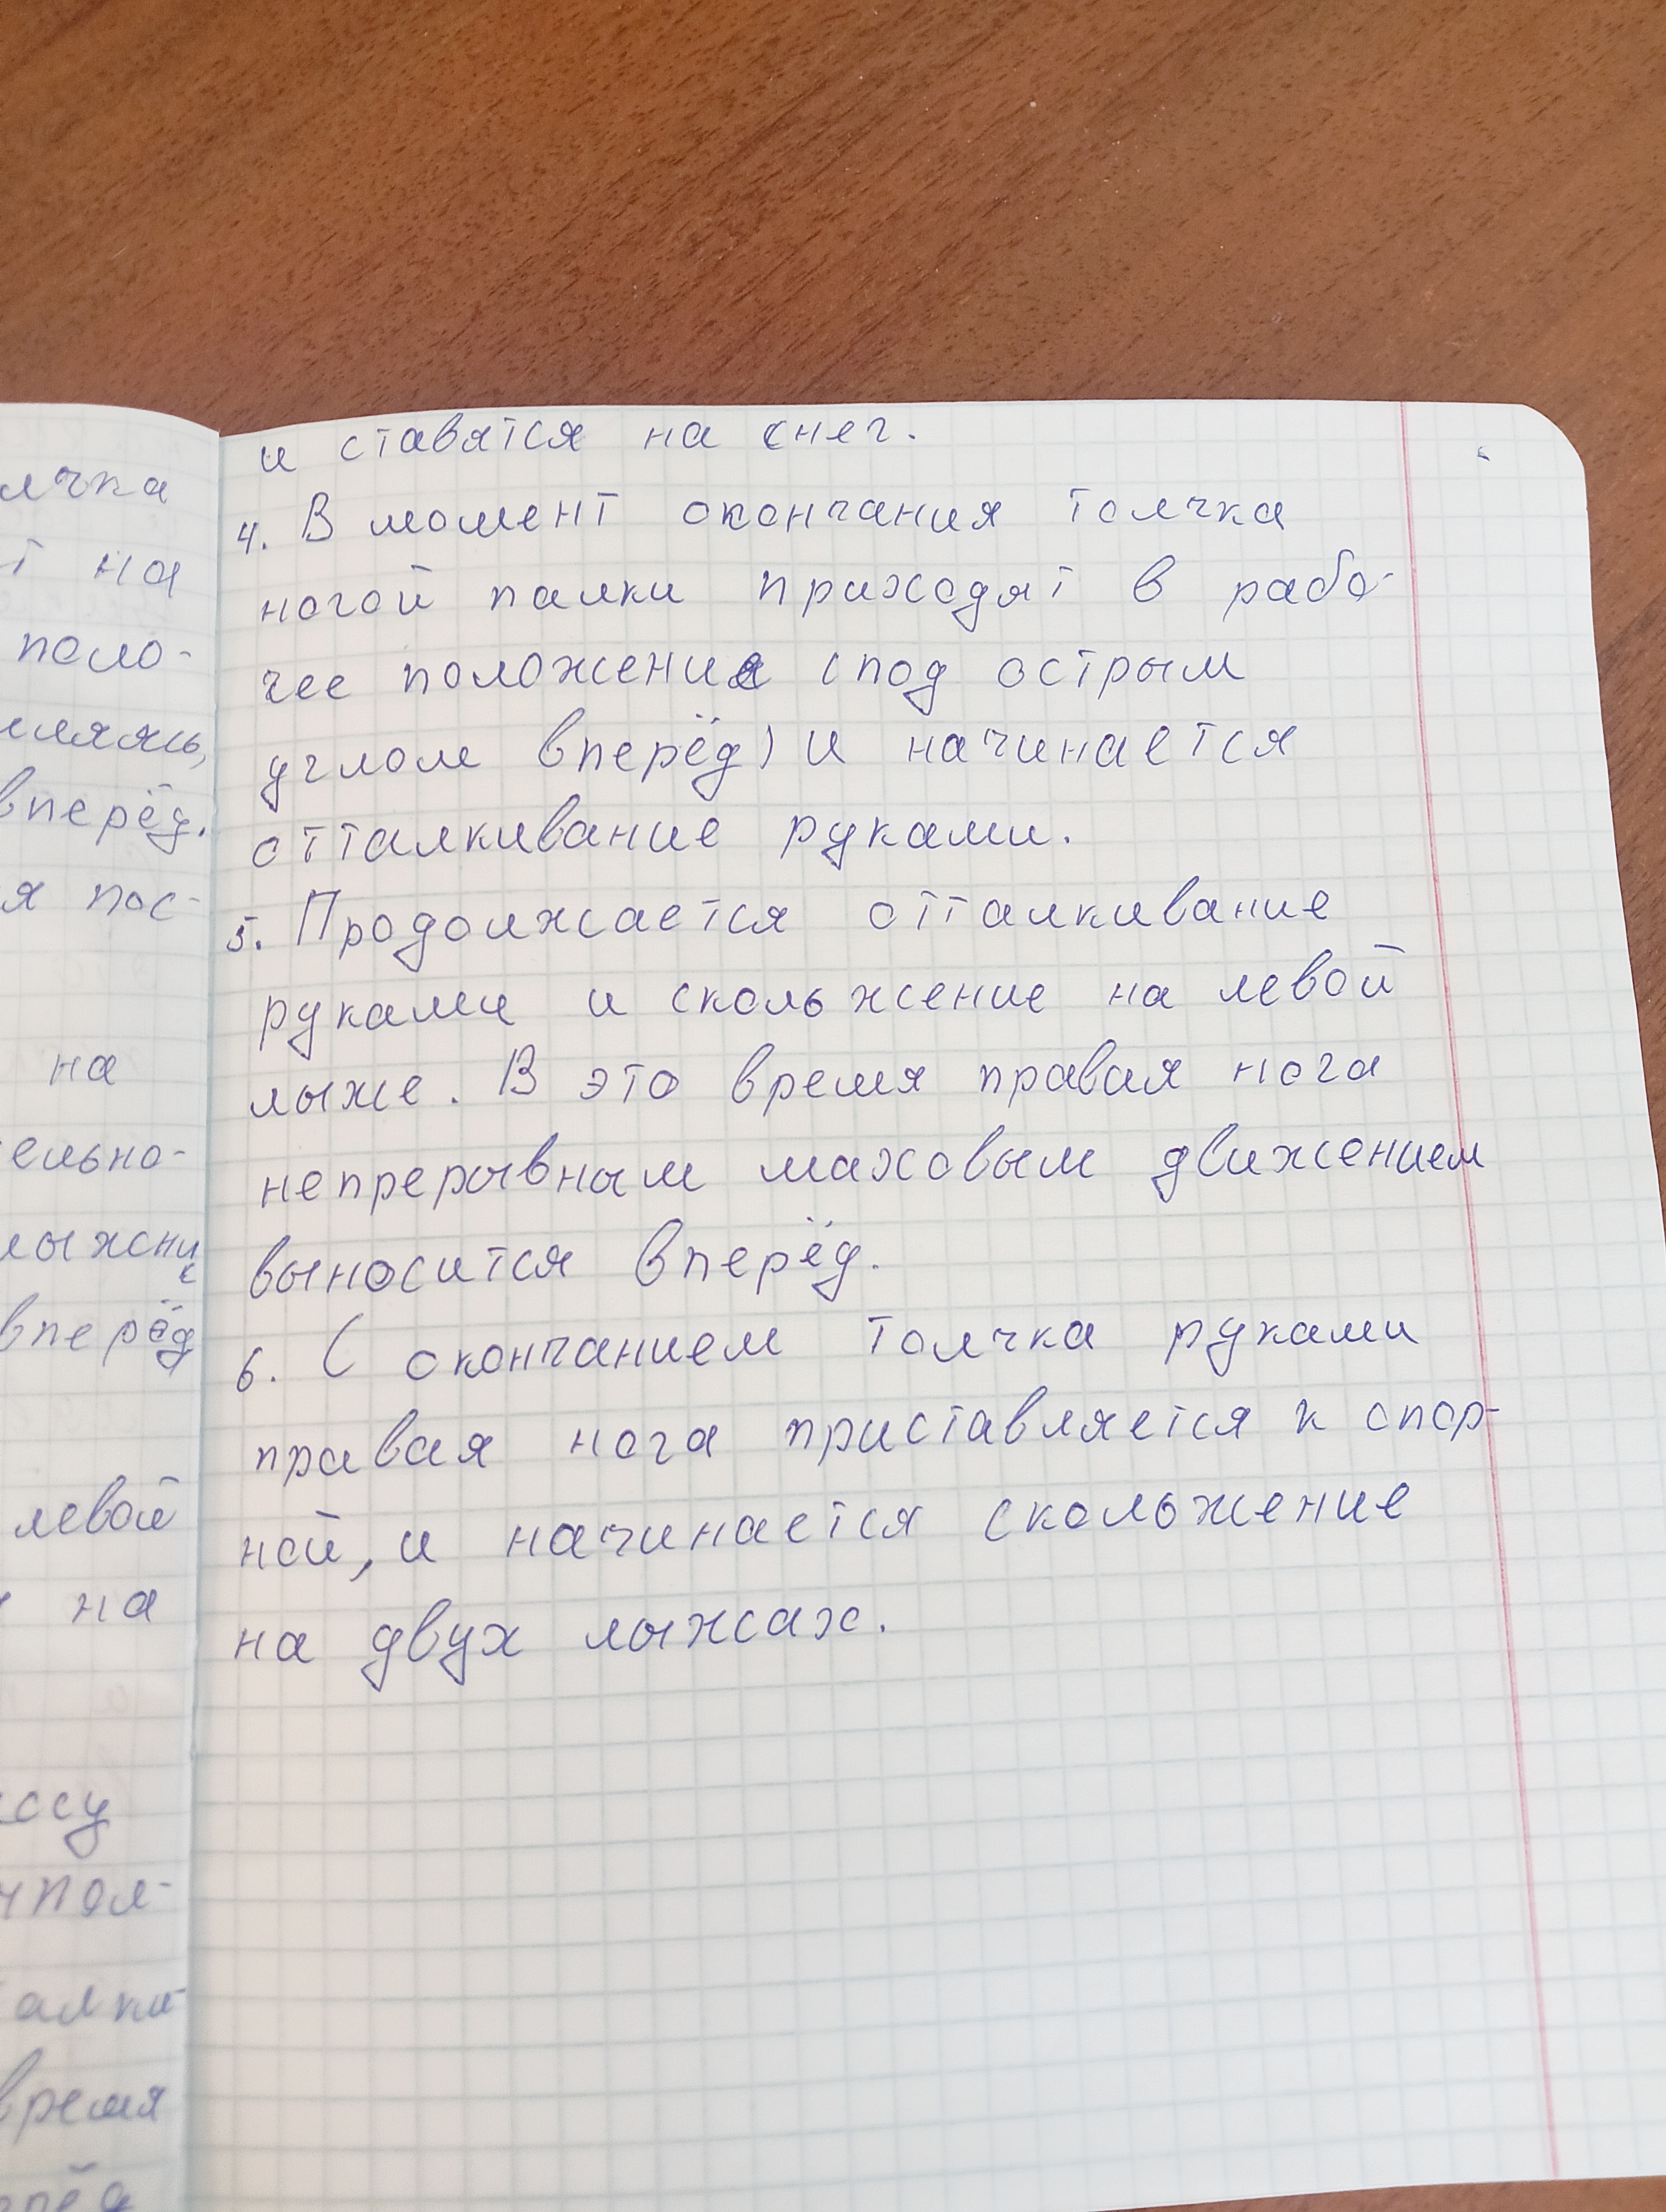 лчка
на
поло-
вперёд.
я пос-
на
ельно-
лыжник
вперёд
левой
на
ссу
алки
время
и ставятся на снег.
4. В момент окончания толчка
ногой палки приходят в рабо-
чее положение (под острым
углом вперёд) и начинается
отталкивание руками.
5. Продолжается отталкивание
руками и скольжение на левой
лыже. В это время правая нога
непрерывным маховым движением
выносится вперёд.
6. С окончанием толчка руками
правая нога приставляется к опор-
ной, и начинается скольжение
на двух лыжах.